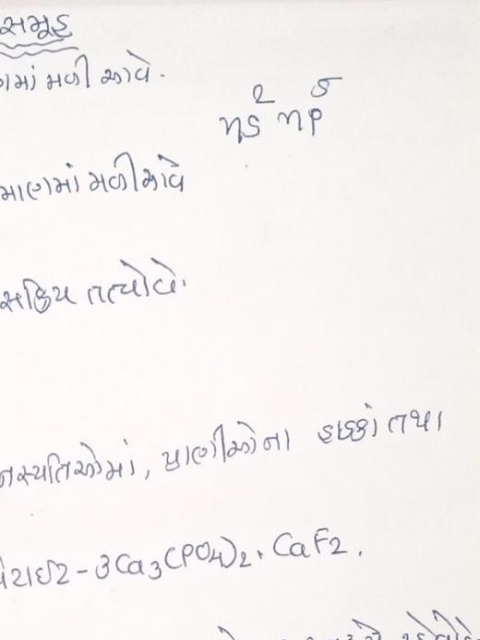 સમૂહ
ણમાં મળી આવે.
ns² np⁵
માણમાં મળી આવે
સક્રિય તત્વો છે.
નસ્પતિઓમાં, પ્રાણીઓના હાડકાં તથા
પેટાઈટ - 3Ca₃(PO₄)₂. CaF₂.